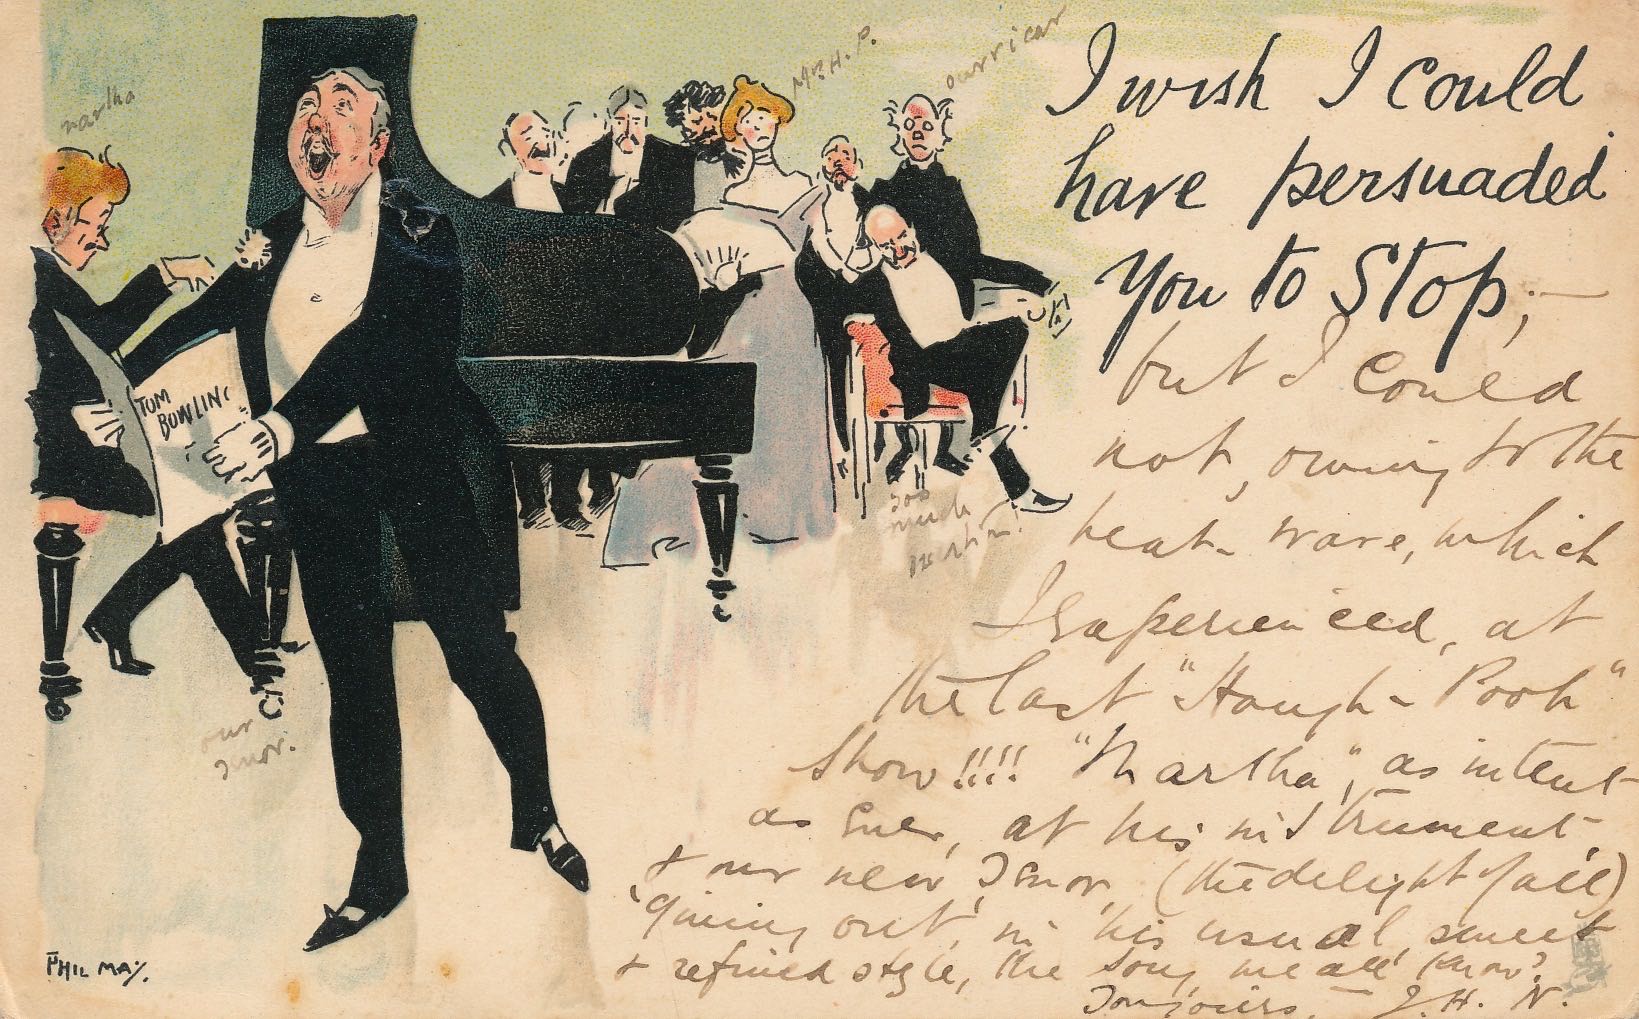 I wish I could
have persuaded
you to Stop; —
but I could
not, owing to the
heat-wave, which
I experienced, at
the last "Hough-Pooh"
Show!!!! "Martha", as intent
as ever, at his instrument,
& our new Tenor, (the delight of all)
'giving out', in his usual, sweet
& refined style, the song we all know?
Toujours, J. H. N.
Martha
Mr. H. P.
our vicar
TOM
BOWLING
too
much
our
Tenor.
PHIL MAY.